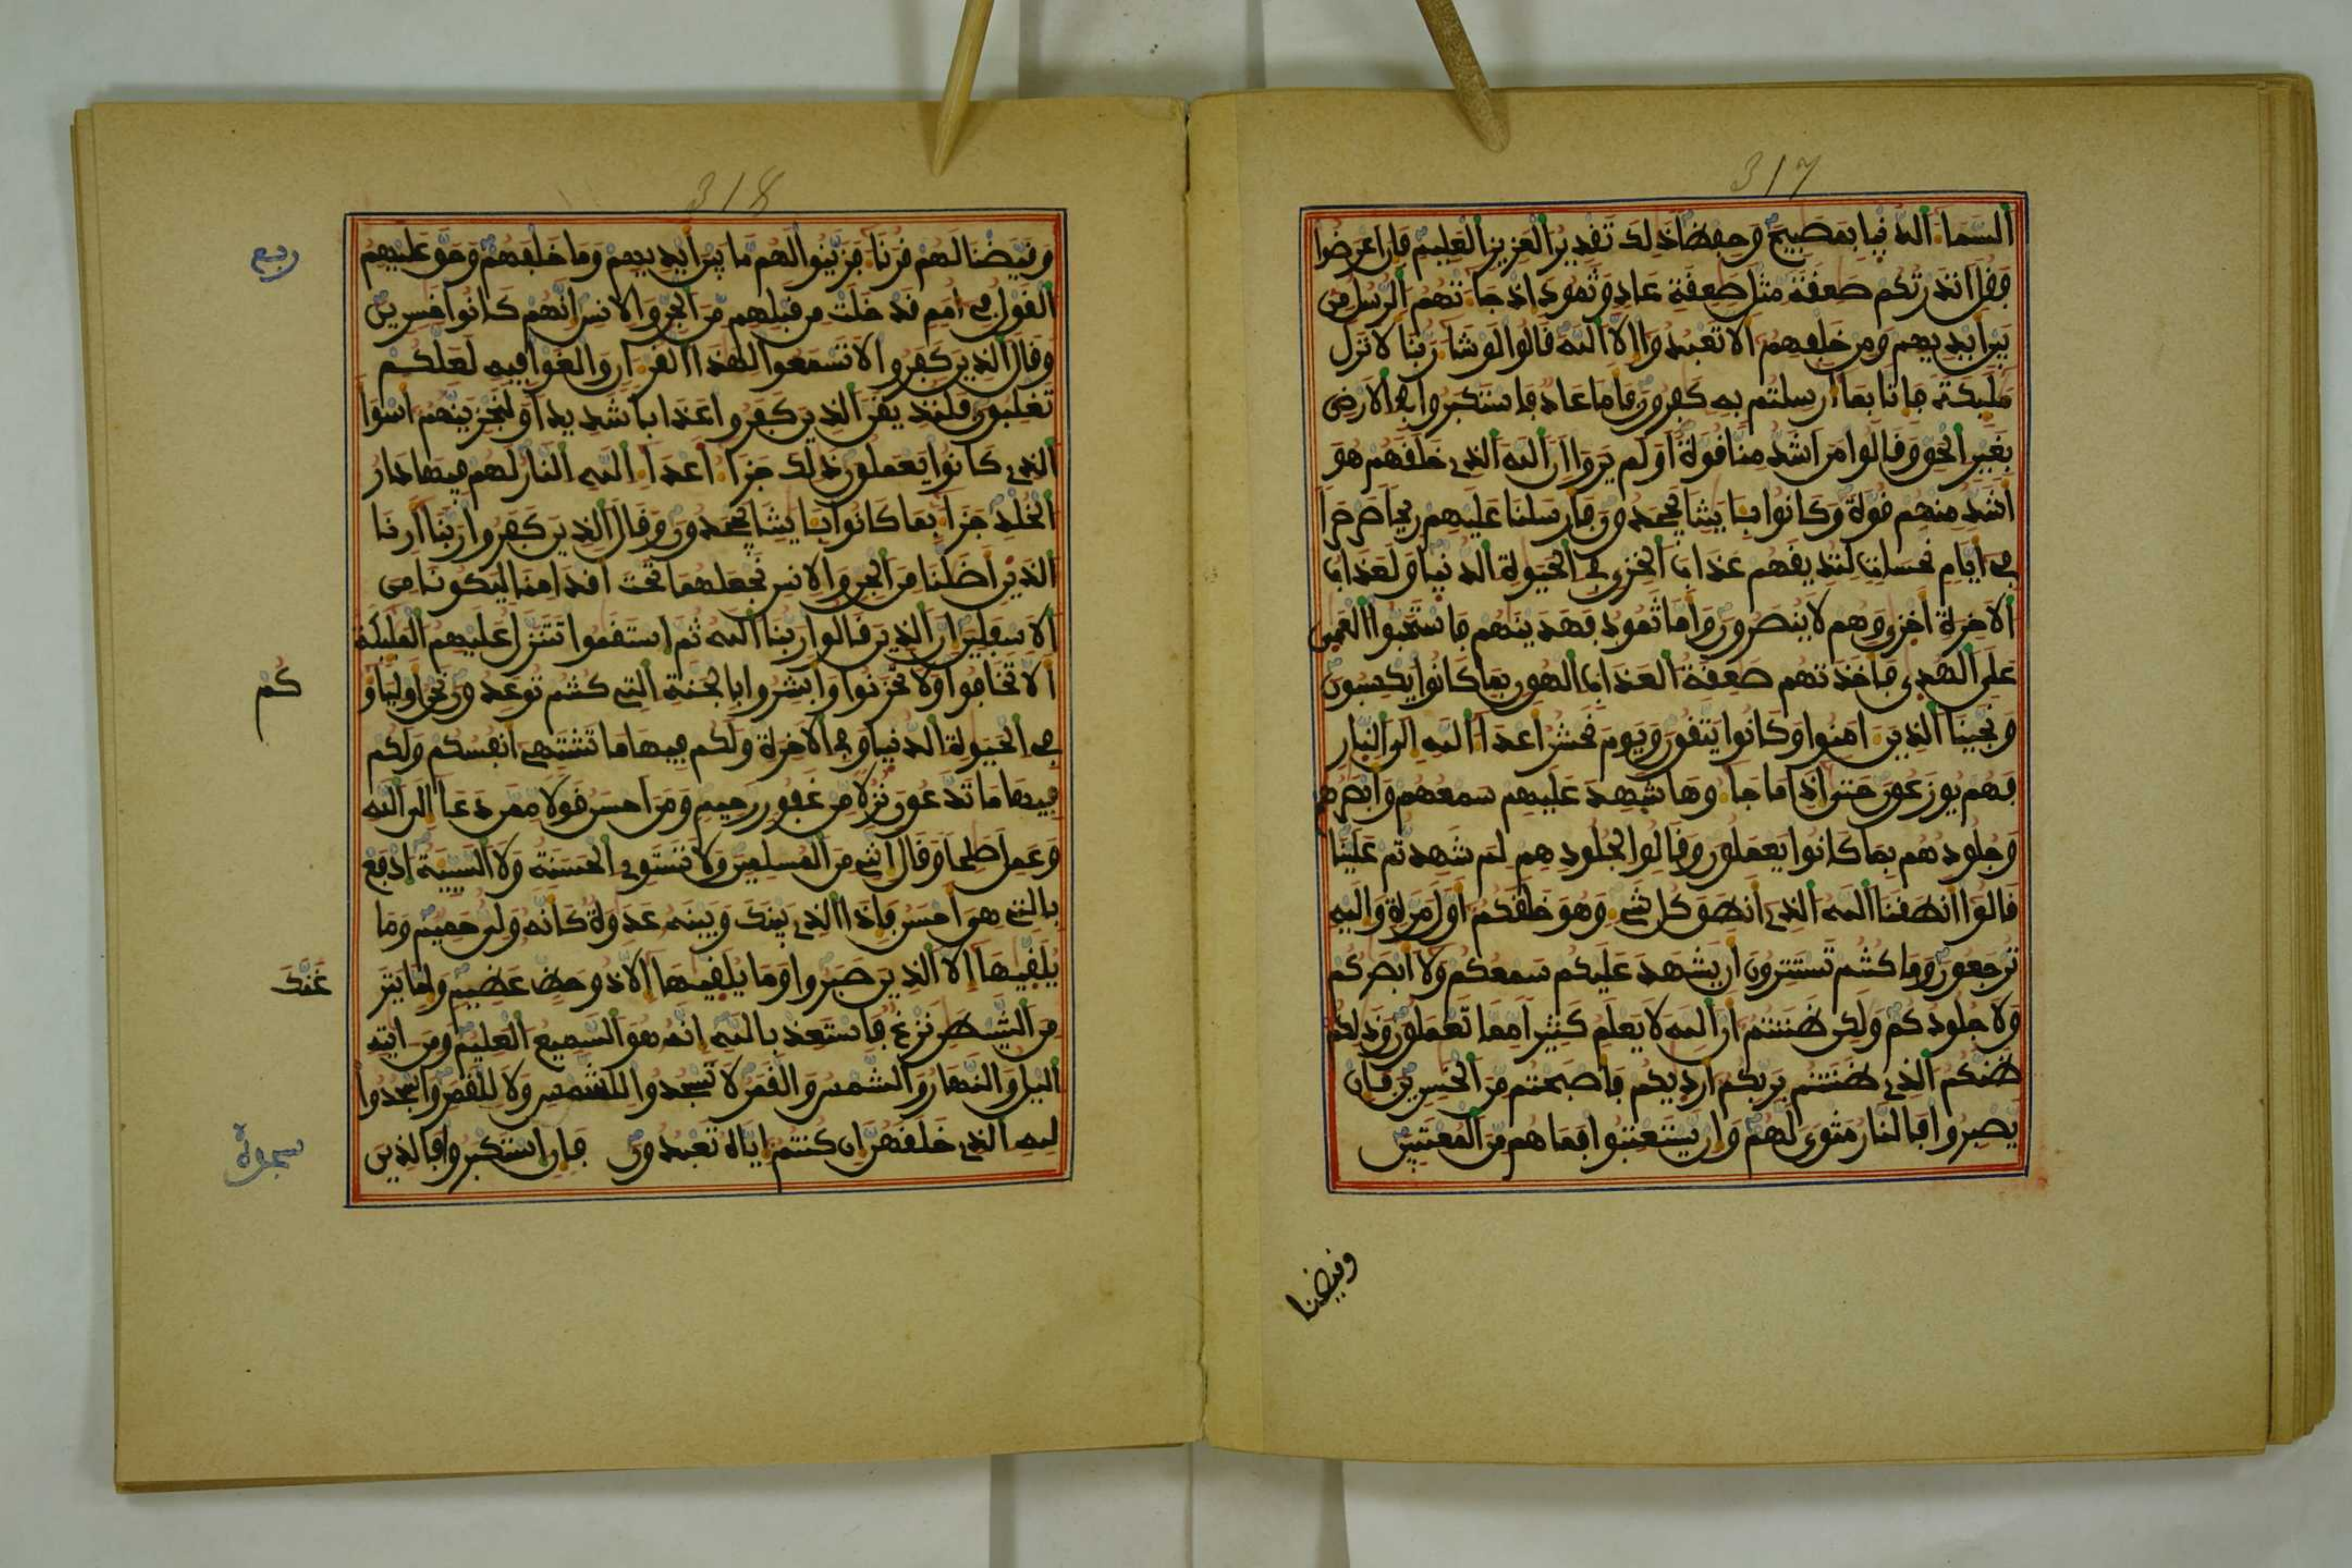 317
السما الدنيا بمصبيح وحفظا ذلك تقدير العزيز العليم فإن اعرضوا
فقل انذرتكم صعقة مثل صعقة عاد وثمود اذ جاءتهم الرسل من
بين ايديهم ومن خلفهم الا تعبدوا إلا الله قالوا لو شاء ربنا لانزل
مليكة فإنا بما أرسلتم به كفرون فأما عاد فاستكبروا في الارض
بغير الحق وقالوا من اشد منا قوة اولم يروا ان الله الذي خلقهم هو
اشد منهم قوة وكانوا بايتنا يجحدون فأرسلنا عليهم ريحا صرصرا
في ايام نحسات لنذيقهم عذاب الخزي في الحيوة الدنيا ولعذاب
الاخرة اخزى وهم لا ينصرون وأما ثمود فهدينهم فاستحبوا العمى
على الهدى فأخذتهم صعقة العذاب الهون بما كانوا يكسبون
ونجينا الذين ءامنوا وكانوا يتقون ويوم نحشر اعداء الله إلى النار
فهم يوزعون حتى إذا ما جاءوها شهد عليهم سمعهم وابصرهم
وجلودهم بما كانوا يعملون وقالوا لجلودهم لم شهدتم علينا
قالوا انطقنا الله الذي انطق كل شيء وهو خلقكم أول مرة وإليه
ترجعون وما كنتم تستترون ان يشهد عليكم سمعكم ولا ابصركم
ولا جلودكم ولكن ظننتم ان الله لا يعلم كثيرا مما تعملون وذلكم
ظنكم الذي ظننتم بربكم ارديكم فأصبحتم من الخسرين فإن
يصبروا فالنار مثوى لهم وإن يستعتبوا فما هم من المعتبين
وقيضنا
318
وقيضنا لهم قرناء فزينوا لهم ما بين ايديهم وما خلفهم وحق عليهم
القول في أمم قد خلت من قبلهم من الجن والانس انهم كانوا خسرين
وقال الذين كفروا لا تسمعوا لهذا القرءان والغوا فيه لعلكم
تغلبون فلنذيقن الذين كفروا عذابا شديدا ولنجزينهم اسوأ
الذي كانوا يعملون ذلك جزاء اعداء الله النار لهم فيها دار
الخلد جزاء بما كانوا بايتنا يجحدون وقال الذين كفروا ربنا أرنا
الذين اضلنا من الجن والانس نجعلهما تحت اقدامنا ليكونا من
الاسفلين ان الذين قالوا ربنا الله ثم استقموا تتنزل عليهم المليكة
الا تخافوا ولا تحزنوا وأبشروا بالجنة التي كنتم توعدون نحن اولياؤ
كم
في الحيوة الدنيا وفي الاخرة ولكم فيها ما تشتهي انفسكم ولكم
فيها ما تدعون نزلا من غفور رحيم ومن احسن قولا ممن دعا إلى الله
وعمل صلحا وقال انني من المسلمين ولا تستوي الحسنة ولا السيئة ادفع
بالتي هي احسن فإذا الذي بينك وبينه عدوة كأنه ولي حميم وما
يلقيها إلا الذين صبروا وما يلقيها إلا ذو حظ عظيم وإما ينز
غنك
من الشيطن نزغ فاستعذ بالله إنه هو السميع العليم ومن ءايته
اليل والنهار والشمس والقمر لا تسجدوا للشمس ولا للقمر واسجدوا
لله الذي خلقهن إن كنتم إياه تعبدون فإن استكبروا فالذين
ربع
سجدة